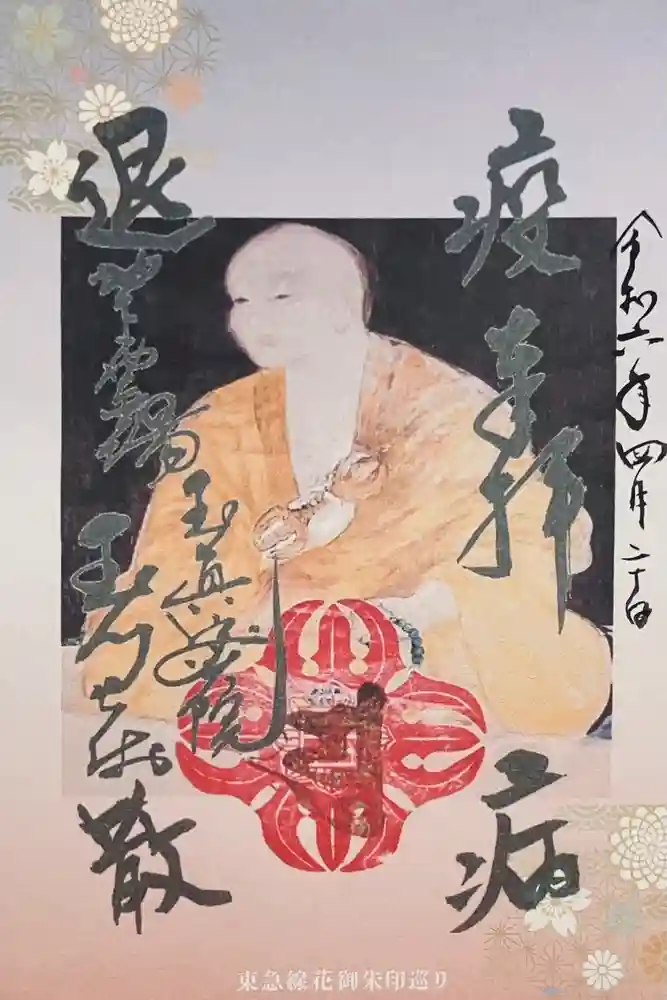 令和六年四月二十日
疫病
奉拝
退散
玉真密院
玉川大師
東急線花御朱印巡り